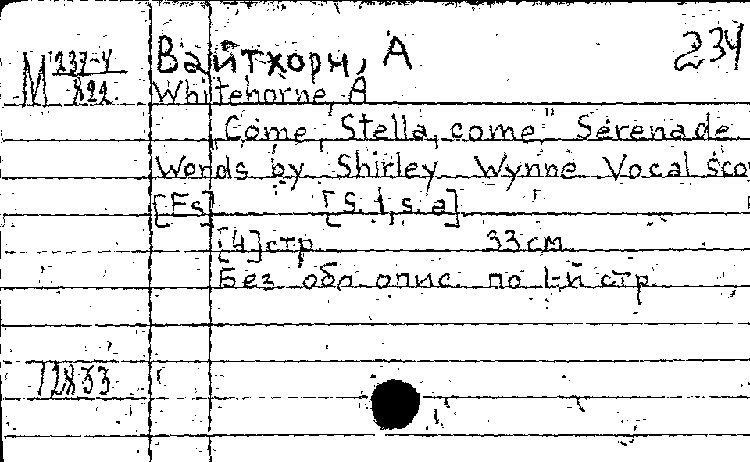 Вайтхорн, А 234
М 237-4/822
Whitehorne, A
"Come, Stella, come" Serenade
Words by Shirley Wynne Vocal sco
[Es] [s. l., s. a]
[4] стр. 33 см.
Без обл. опис. по 1-й стр.
12833